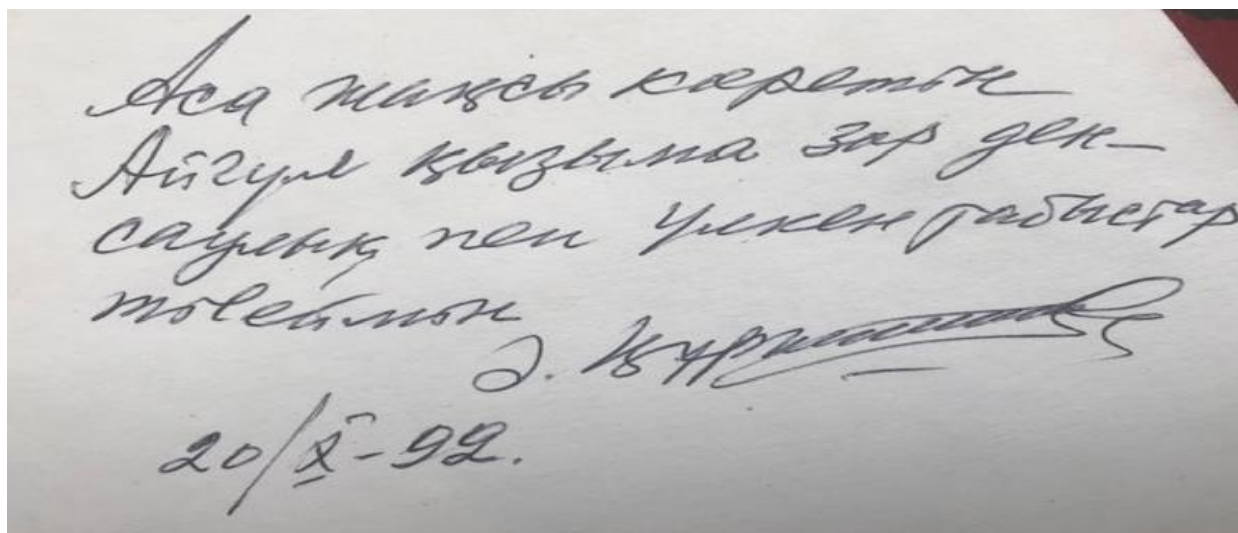 Аса жақсы көретін
Айгүл қызыма зор ден-
саулық пен үлкен табыстар
тілеймін
Ә. Нұршайықов
20/X-92.